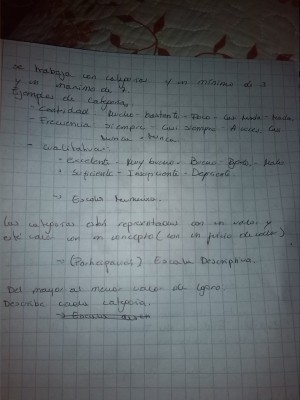 se trabaja con categorías y un mínimo de 3
y un máximo de 7.
Ejemplos de categorías
- Cantidad: Mucho - Bastante - Poco - Casi Nada - Nada
- Frecuencia: Siempre - Casi siempre - A veces, Casi
nunca - nunca
- Cualitativas:
• Excelente - Muy bueno - Bueno - - Malo
• Suficiente - Insuficiente - Deficiente.
→ Escala Numérica.
Las categorías están representadas con un valor y
este valor con un concepto (son un juicio de valor)
→ Escala Descriptiva.
Del mayor al menor valor de logro.
Describe cada categoría.